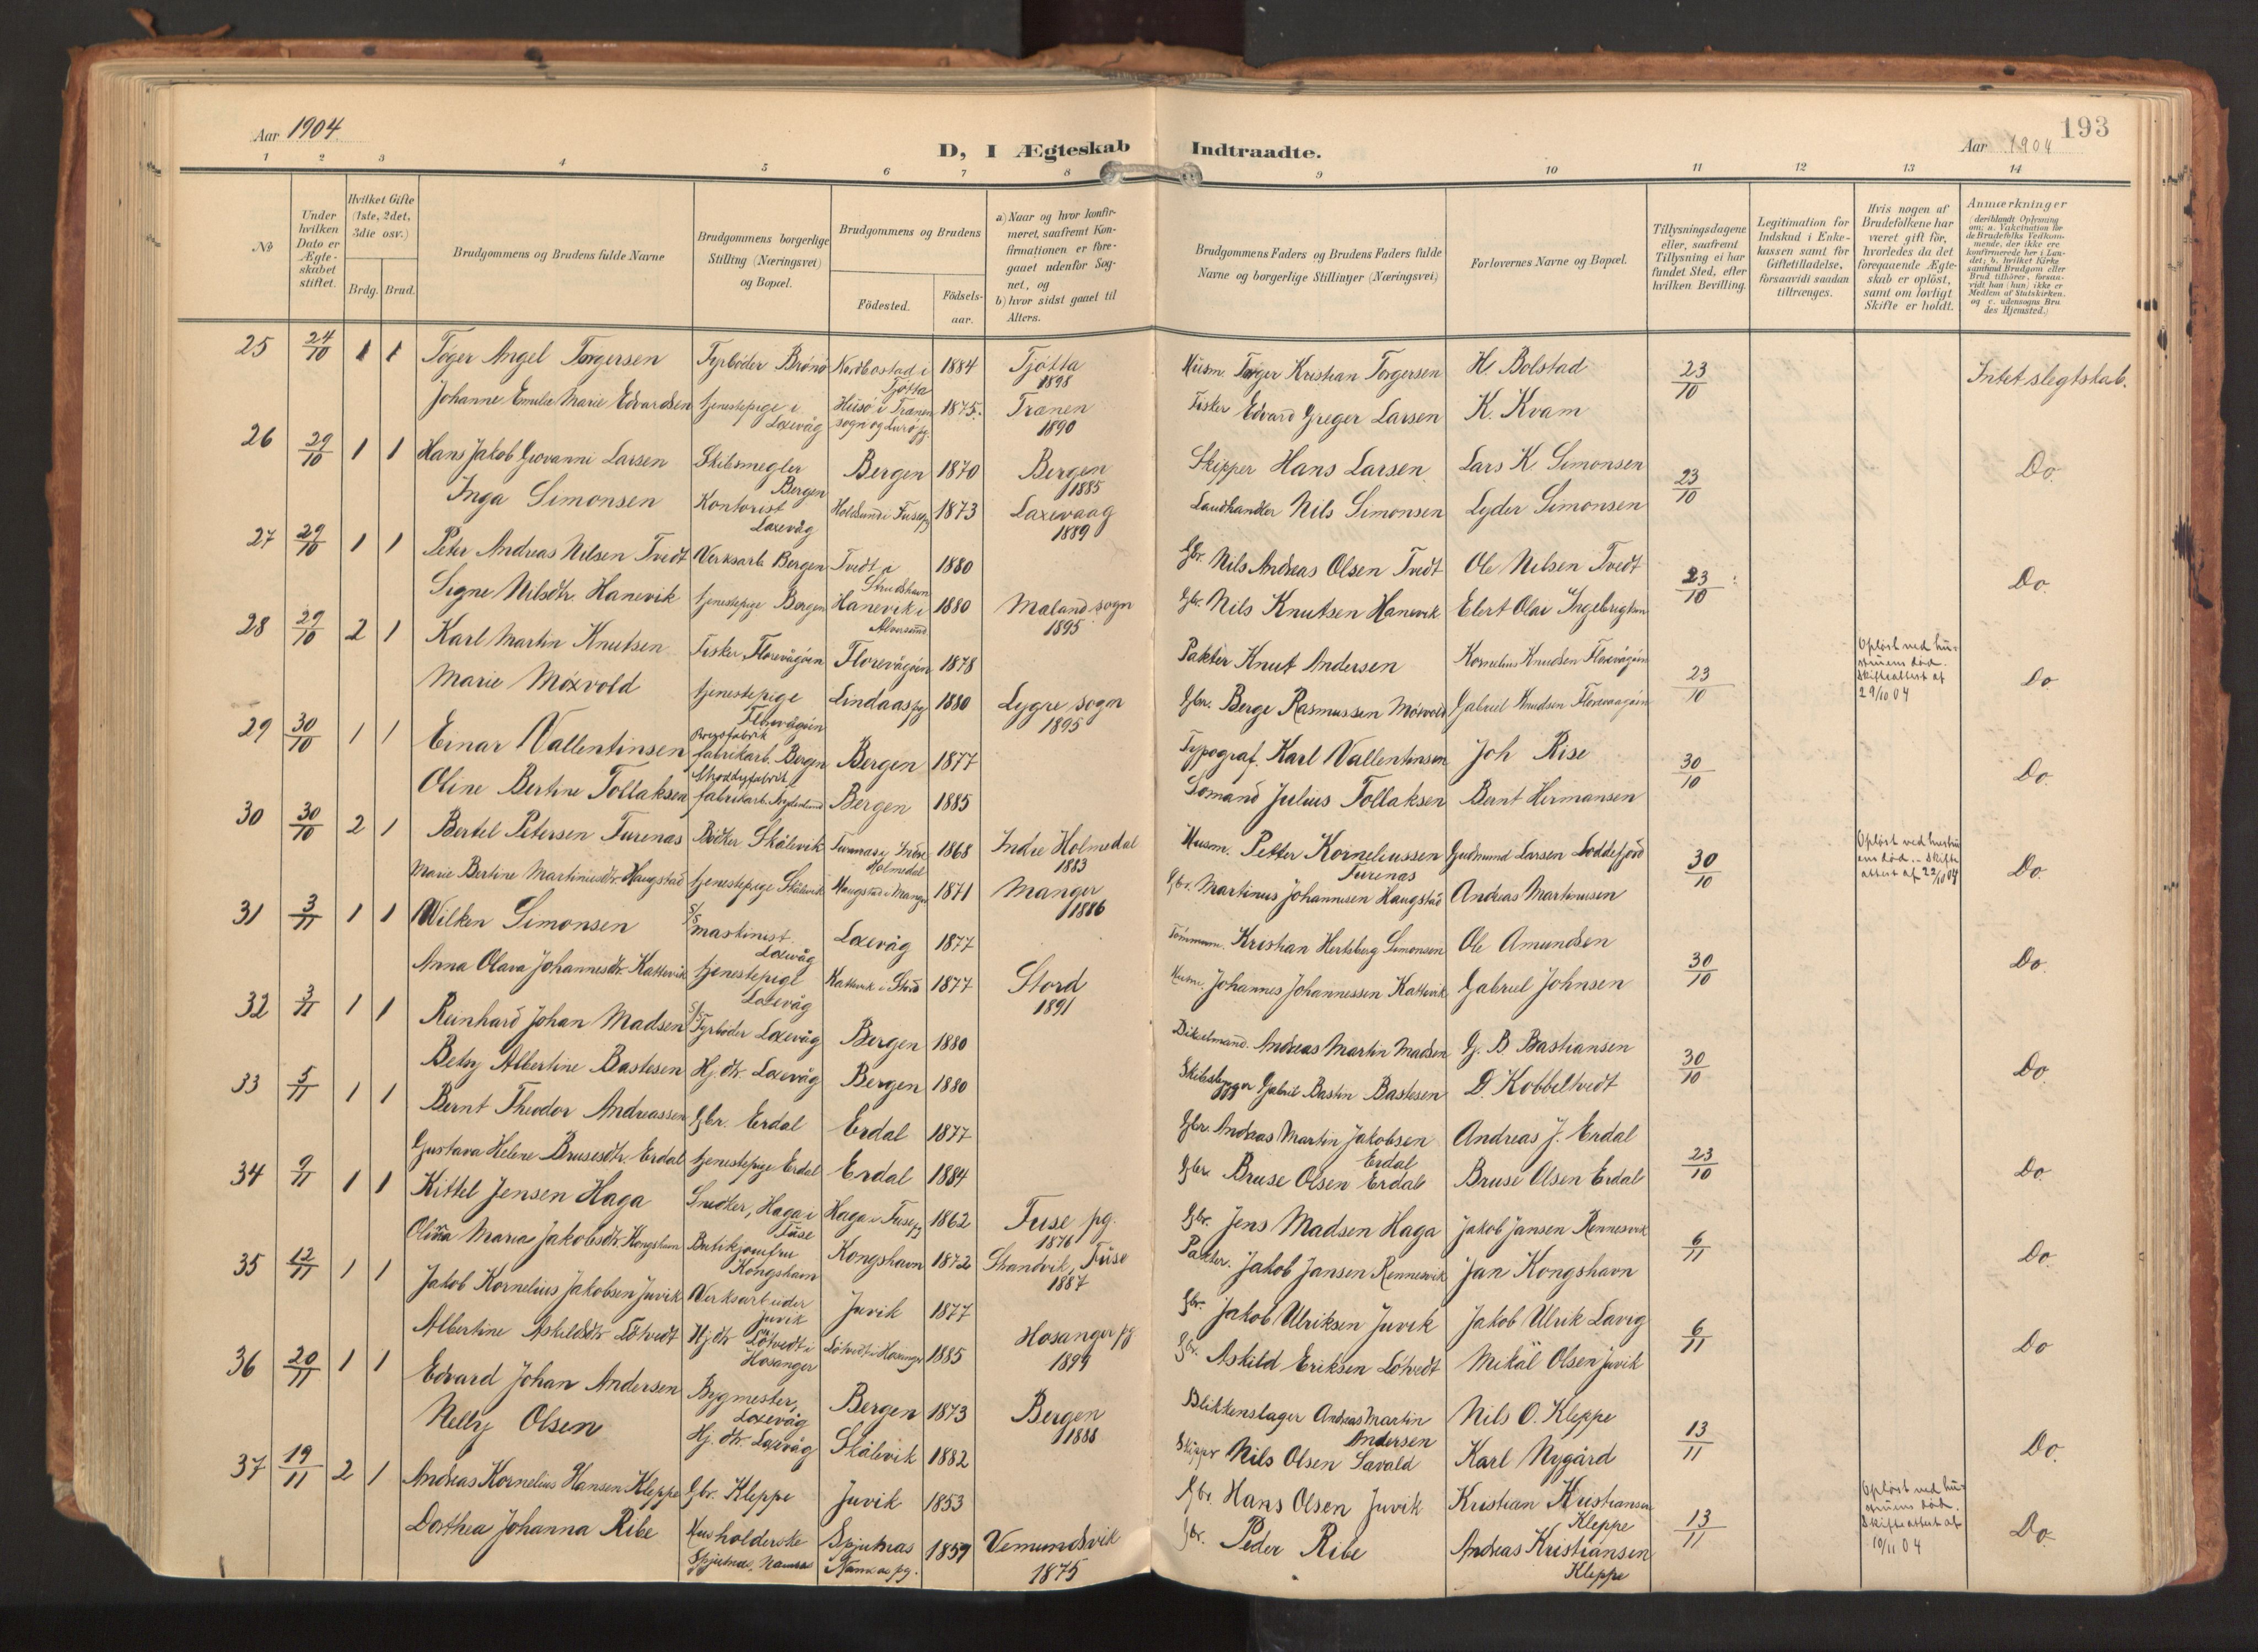 193
Aar 1904
D, I Ægteskab Indtraadte.
Aar 1904
1 2 3 4 5 6 7 8 9 10 11 12 13 14
No
Under hvilken Dato er Ægteskabet stiftet.
Hvilket Gifte (1ste, 2det, 3die osv.)
Brdg. Brud.
Brudgommens og Brudens fulde Navne
Brudgommens borgerlige Stilling (Næringsvei) og Bopæl.
Brudgommens og Brudens
Födested.
Födselsaar.
a) Naar og hvor konfirmeret, saafremt Konfirmationen er foregaaet udenfor Sognet, og
b) hvor sidst gaaet til Alters.
Brudgommens Faders og Brudens Faders fulde Navne og borgerlige Stillinger (Næringsvei)
Forlovernes Navne og Bopæl.
Tillysningsdagene eller, saafremt Tillysning ei har fundet Sted, efter hvilken Bevilling.
Legitimation for Indskud i Enkekassen samt for Giftetilladelse, forsaavidt saadan tiltrænges.
Hvis nogen af Brudefolkene har været gift för, hvorledes da det foregaaende Ægteskab er oplöst, samt om lovligt Skifte er holdt.
Anmærkninger (deriblandt Oplysning om: a. Vakcination for de Brudefolks Vedkommende, der ikke ere konfirmerede her i Landet; b. hvilket Kirkesamfund Brudgom eller Brud tilhører, forsaavidt han (hun) ikke er Medlem af Statskirken, og c. udensogns Brudes Hjemsted.)
25 24/10 1 1 Töger Angel Torgersen Fyrböder Brönö Nordbostad i Tjötta 1884 Tjøtta 1898 Husm. Torger Kristian Torgersen H. Bolstad 23/10 Intet slegtskab.
Johanne Emilie Marie Edvardsen tjenestepige i Laxevåg Husö i Tranen sogn og Lurö pg. 1875 Tranen 1890 Fisker Edvard Greger Larsen K. Kvam
26 29/10 1 1 Hans Jakob Giovanni Larsen Skibsmegler Bergen Bergen 1870 Bergen 1885 Skipper Hans Larsen Lars K Simonsen 23/10 Do.
Inga Simonsen Kontorist Laxevåg Holdsund i Fuse pg 1873 Laxevaag 1889 Landhandler Nils Simonsen Lyder Simonsen
27 29/10 1 1 Peter Andreas Nilsen Tvedt Verksarb. Bergen Tvedt i 1880 Gbr. Nils Andreas Olsen Tvedt Ole Nilsen Tvedt 23/10 Do.
Signe Nilsdtr Hanevik tjenestepige Bergen Hanevik i Alversund 1880 Maland sogn 1895 Gbr. Nils Knutsen Hanevik Elert Olai Ingebrigtsen
28 29/10 2 1 Karl Martin Knutsen Fisker, Florevågöen Florevågöen 1878 Pakter Knut Andersen Kornelius Knudsen Florevågöen 23/10 Oplöst ved hustruens död. Skifteattest af 29/10 04 Do
Marie Möxvold tjenestepige Florevågöen Lindaas pg 1880 Lygre sogn 1895 Gbr. Berge Rasmussen Möxvold Gabriel Knudsen Florevaagöen
29 30/10 1 1 Einar Vallentinsen fabrikarb. Bergen Bergen 1877 Typograf. Karl Vallentinsen Joh Rise 30/10 Do.
Oline Bertine Tollaksen Shoddyfabrik fabrikarb. Bergen 1885 Sömand Julius Tollaksen Bernt Hermansen
30 30/10 2 1 Bertel Petersen Turenas Bödker Skålevik Turenas i Indre Holmedal 1868 Indre Holmedal 1883 Husm. Petter Korneliussen Turenas Gudmund Larsen Loddefjord 30/10 Oplöst ved hustruens död. Skifteattest af 22/10 04 Do.
Marie Bertine Martiniusdtr. Haugstad tjenestepige Skålevik Haugstad i Manger 1871 Manger 1886 Gbr. Martinus Johannesen Haugstad Andreas Martinusen
31 3/11 1 1 Wilken Simonsen S/S maskinist Laxevåg Laxevåg 1877 Tömmerm. Kristian Hertsberg Simonsen Ole Amundsen 30/10 Do.
Anna Olava Johannesdtr. Kattevik tjenestepige Laxevåg Kattevik i Stord 1877 Stord 1891 Husm. Johannes Johannessen Kattevik Gabriel Johnsen
32 3/11 1 1 Reinhard Johan Madsen S/S Fyrböder Laxevåg Bergen 1880 Andreas Martin Madsen G. B. Bastiansen 30/10 Do.
Betsy Albertine Bastesen Hj. dtr. Laxevåg Bergen 1880 Skibsbygger Gabriel Bastin Bastesen D. Kobbeltvedt
33 5/11 1 1 Bernt Theodor Andreassen Gbr. Erdal Erdal 1877 Gbr. Andreas Martin Jakobsen Erdal Andreas J. Erdal 23/10 Do.
Gustava Helene Brusesdtr. Erdal tjenestepige Erdal Erdal 1884 Gbr. Bruse Olsen Erdal Bruse Olsen Erdal
34 9/11 1 1 Kittel Jensen Haga Snedker, Haga i Fuse Haga i Fuse pg 1862 Fuse pg. 1876 Gbr. Jens Madsen Haga Jakob Jansen Rennesvik 6/11 Do.
Olina Maria Jakobsdtr. Kongshavn Butikjomfru Kongshavn Kongshavn 1872 Strandvik, Fuse 1887 Pakter. Jakob Jansen Rennesvik Jan Kongshavn
35 12/11 1 1 Jakob Kornelius Jakobsen Juvik Verksarbeider Juvik Juvik 1877 Gbr. Jakob Ulriksen Juvik Jakob Ulrik Lavig 6/11 Do
Albertine Askildsdtr Lötvedt Hj dtr Lötvedt i Hosanger Lötvedt i Hosanger 1885 Hosanger pg 1899 Gbr. Askild Eriksen Lötvedt Mikäl Olsen Juvik
36 20/11 1 1 Edvard Johan Andersen Bygmester, Laxevåg Bergen 1873 Bergen 1888 Blikkenslager Andreas Martin Andersen Nils O. Kleppe 13/11 Do.
Nelly Olsen Hj. dtr. Laxevåg Skålevik 1882 Skipper Nils Olsen Lavald Karl Nygård
37 19/11 2 1 Andreas Kornelius Hansen Kleppe Gbr. Kleppe Juvik 1853 Gbr. Hans Olsen Juvik Kristian Kristiansen Kleppe 13/11 Oplöst ved hustruens död. Skifteattest af 10/11 04 Do.
Dorthea Johanna Ribe Husholderske Spjutnæs, Namsos Spjutnæs Namsos pg. 1859 Vemundsvik 1875 Gbr. Peder Ribe Andreas Kristiansen Kleppe